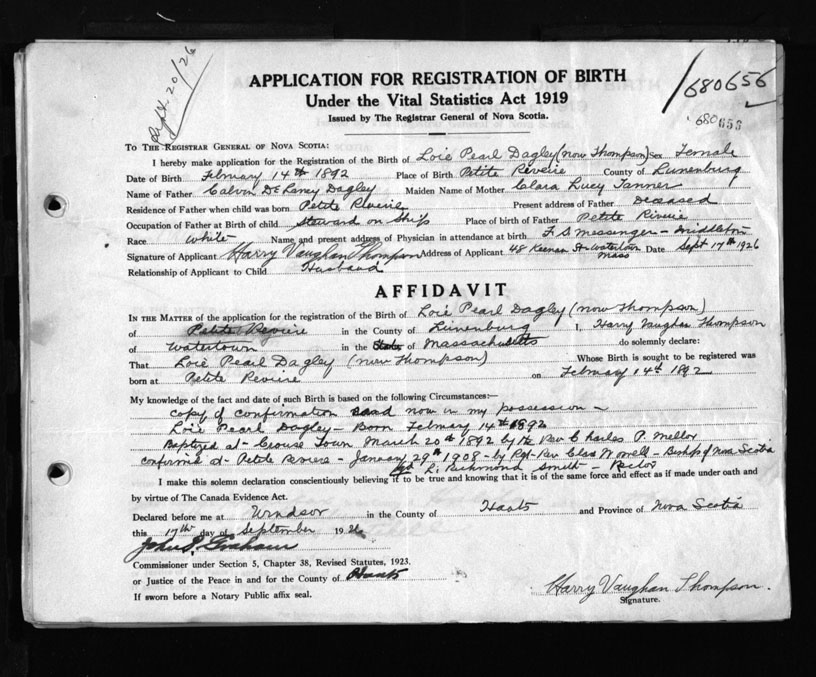 Sept. 20/26
APPLICATION FOR REGISTRATION OF BIRTH
Under the Vital Statistics Act 1919
Issued by The Registrar General of Nova Scotia.
680656
680656
TO THE REGISTRAR GENERAL OF NOVA SCOTIA:
I hereby make application for the Registration of the Birth of Loie Pearl Dagley (now Thompson) Sex Female
Date of Birth February 14th 1892 Place of Birth Petite Reveire County of Lunenburg
Name of Father Calvin DeLaney Dagley Maiden Name of Mother Clara Lucy Tanner
Residence of Father when child was born Petite Riverie Present address of Father Deceased
Occupation of Father at Birth of child Steward on Ship Place of birth of Father Petite Rivirie
Race White Name and present address of Physician in attendance at birth F. S Messenger - Middleton
Signature of Applicant Harry Vaughan Thompson Address of Applicant 48 Keenan St Watertown Mass Date Sept 17th 1926
Relationship of Applicant to Child Husband
AFFIDAVIT
IN THE MATTER of the application for the registration of the Birth of Loie Pearl Dagley (now Thompson)
of Petite Reveire in the County of Lunenburg I, Harry Vaughan Thompson
of Watertown in the State of Massachusetts do solemnly declare:
That Loie Pearl Dagley (now Thompson) Whose Birth is sought to be registered was
born at Petite Reveire on February 14th 1892
My knowledge of the fact and date of such Birth is based on the following Circumstances:—
copy of confirmation now in my possession -
Loie Pearl Dagley - Born February 14th 1892
Baptized at - Crouse Town March 20th 1892 by the Rev Charles P. Mellor
confirmed at - Petite Reveire - January 29th 1908 - by Rgt-Rev Clas Worrell - Bishop of Nova Scotia
R. Richmond Smith - Rector
I make this solemn declaration conscientiously believing it to be true and knowing that it is of the same force and effect as if made under oath and
by virtue of The Canada Evidence Act.
Declared before me at Windsor in the County of Hants and Province of Nova Scotia
this 17th day of September 1926
John Graham
Commissioner under Section 5, Chapter 38, Revised Statutes, 1923.
or Justice of the Peace in and for the County of Hants
If sworn before a Notary Public affix seal.
Harry Vaughan Thompson.
Signature.